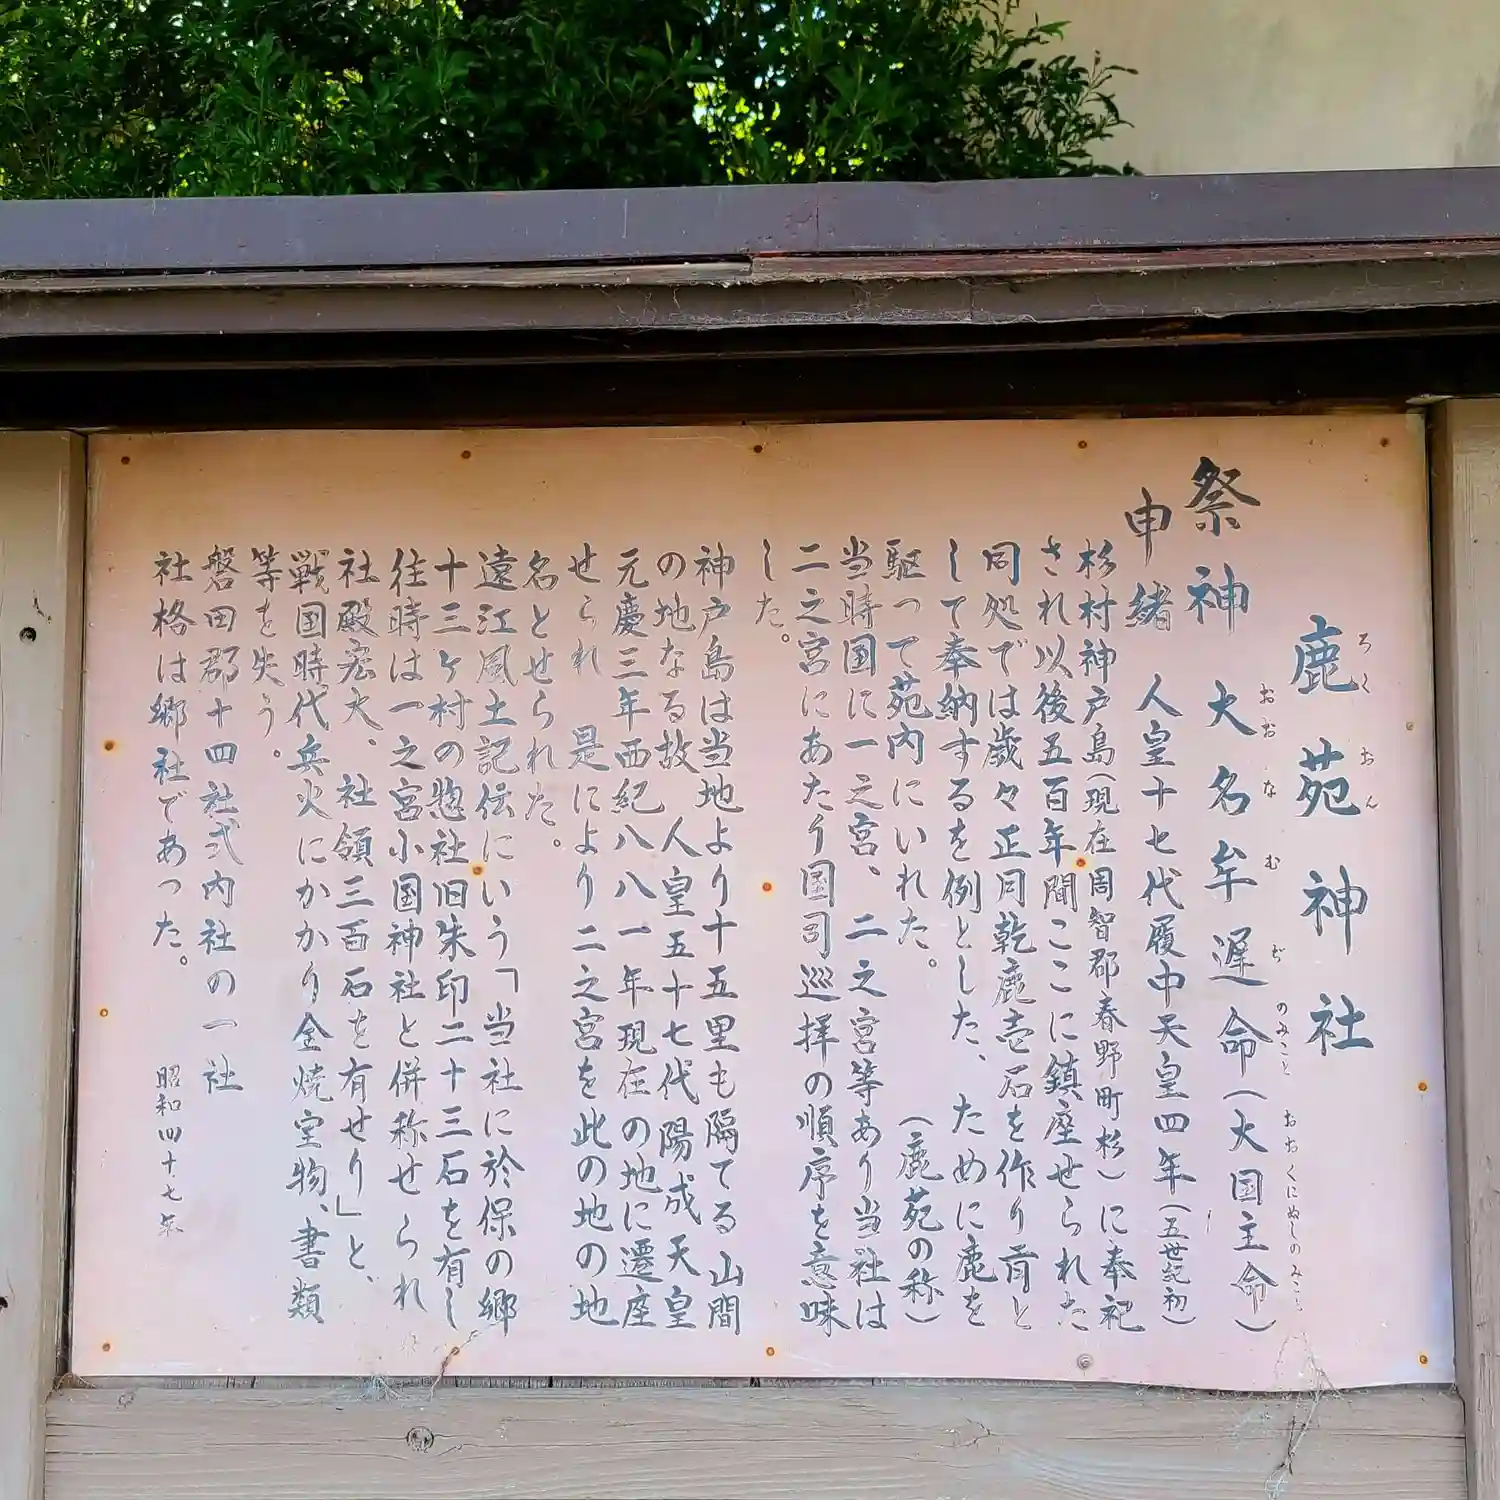 鹿苑神社
ろくおん
祭神 大名牟遅命（大国主命）
おおなむぢのみこと おおくにぬしのみこと
由緒 人皇十七代履中天皇四年（五世紀初）
杉村神戸島（現在周智郡春野町杉）に奉祀
され以後五百年間ここに鎮座せられた
同処では歳々正月乾鹿壱石を作り
して奉納するを例とした、ために鹿を
駆って苑内にいれた。 （鹿苑の称）
当時国に一之宮、二之宮等あり当社は
二之宮にあたり国司巡拝の順序を意味
した。
神戸島は当地より十五里も隔てる山間
の地なる故 人皇五十七代陽成天皇
元慶三年西紀八八一年現在の地に遷座
せられ 是により二之宮を此の地の地
名とせられた。
遠江風土記伝にいう「当社に於保の郷
十三ヶ村の惣社旧朱印二十三石を有し
往時は一之宮小国神社と併称せられ
社殿宏大、社領三百石を有せり」と、
戦国時代兵火にかかり全焼宝物、書類
等を失う。
磐田郡十四社式内社の一社
社格は郷社であった。 昭和四十七年